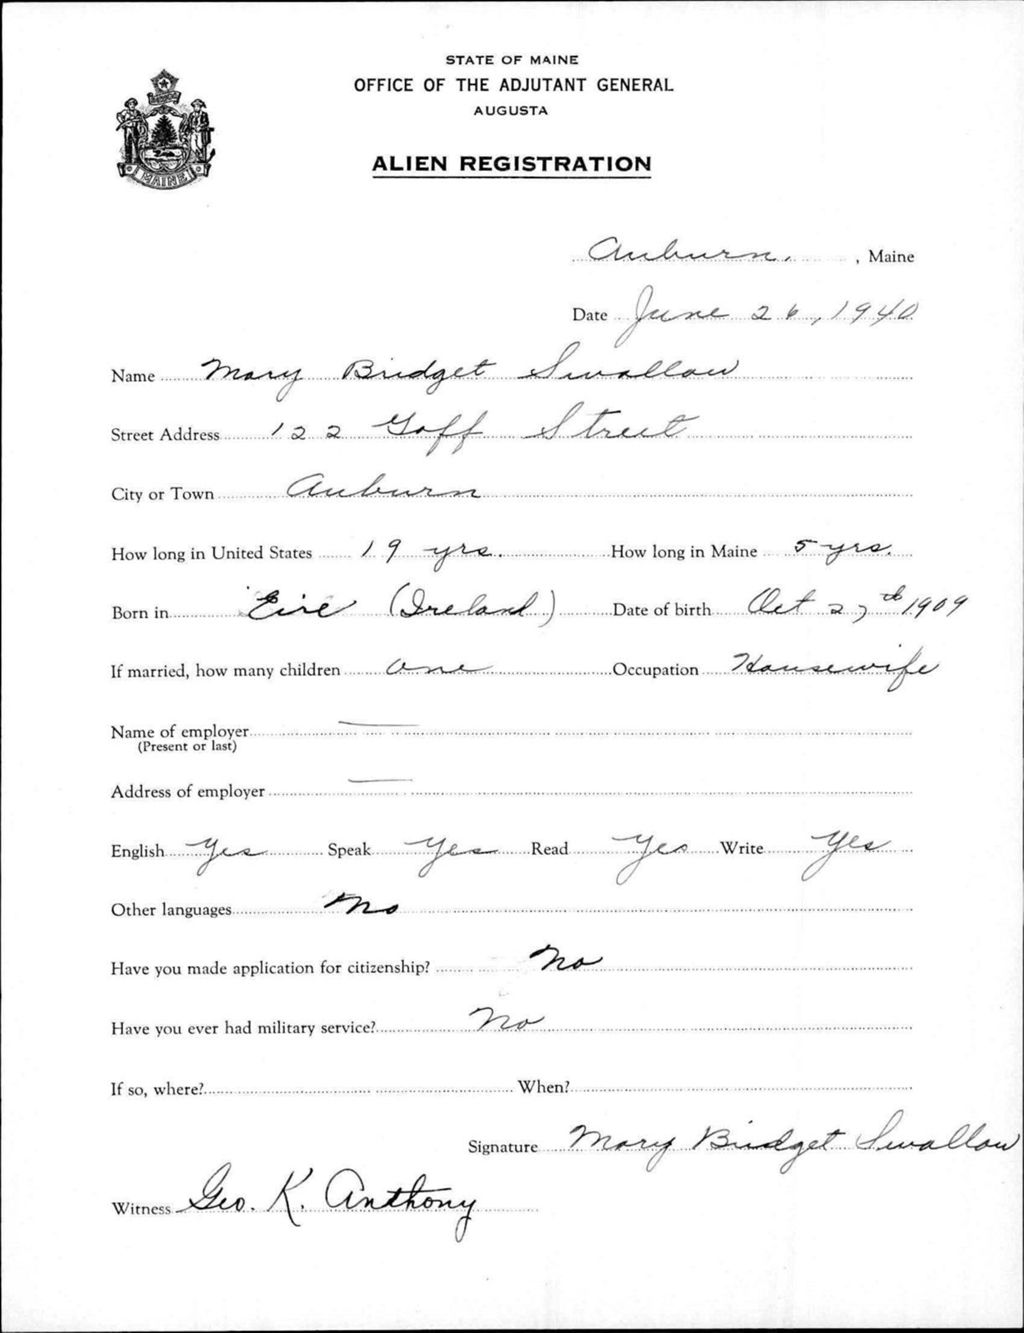 STATE OF MAINE
OFFICE OF THE ADJUTANT GENERAL
AUGUSTA
ALIEN REGISTRATION
MAINE
Auburn. , Maine
Date June 26, 1940
Name Mary Bridget Swallow
Street Address 122 Goff Street
City or Town Auburn
How long in United States 19 yrs. How long in Maine 5 yrs.
Born in Eire (Ireland) Date of birth Oct 27th 1909
If married, how many children one Occupation Housewife
Name of employer —
(Present or last)
Address of employer —
English Yes Speak Yes Read Yes Write Yes
Other languages No
Have you made application for citizenship? No
Have you ever had military service? No
If so, where? When?
Signature Mary Bridget Swallow
Witness Geo. K. Anthony